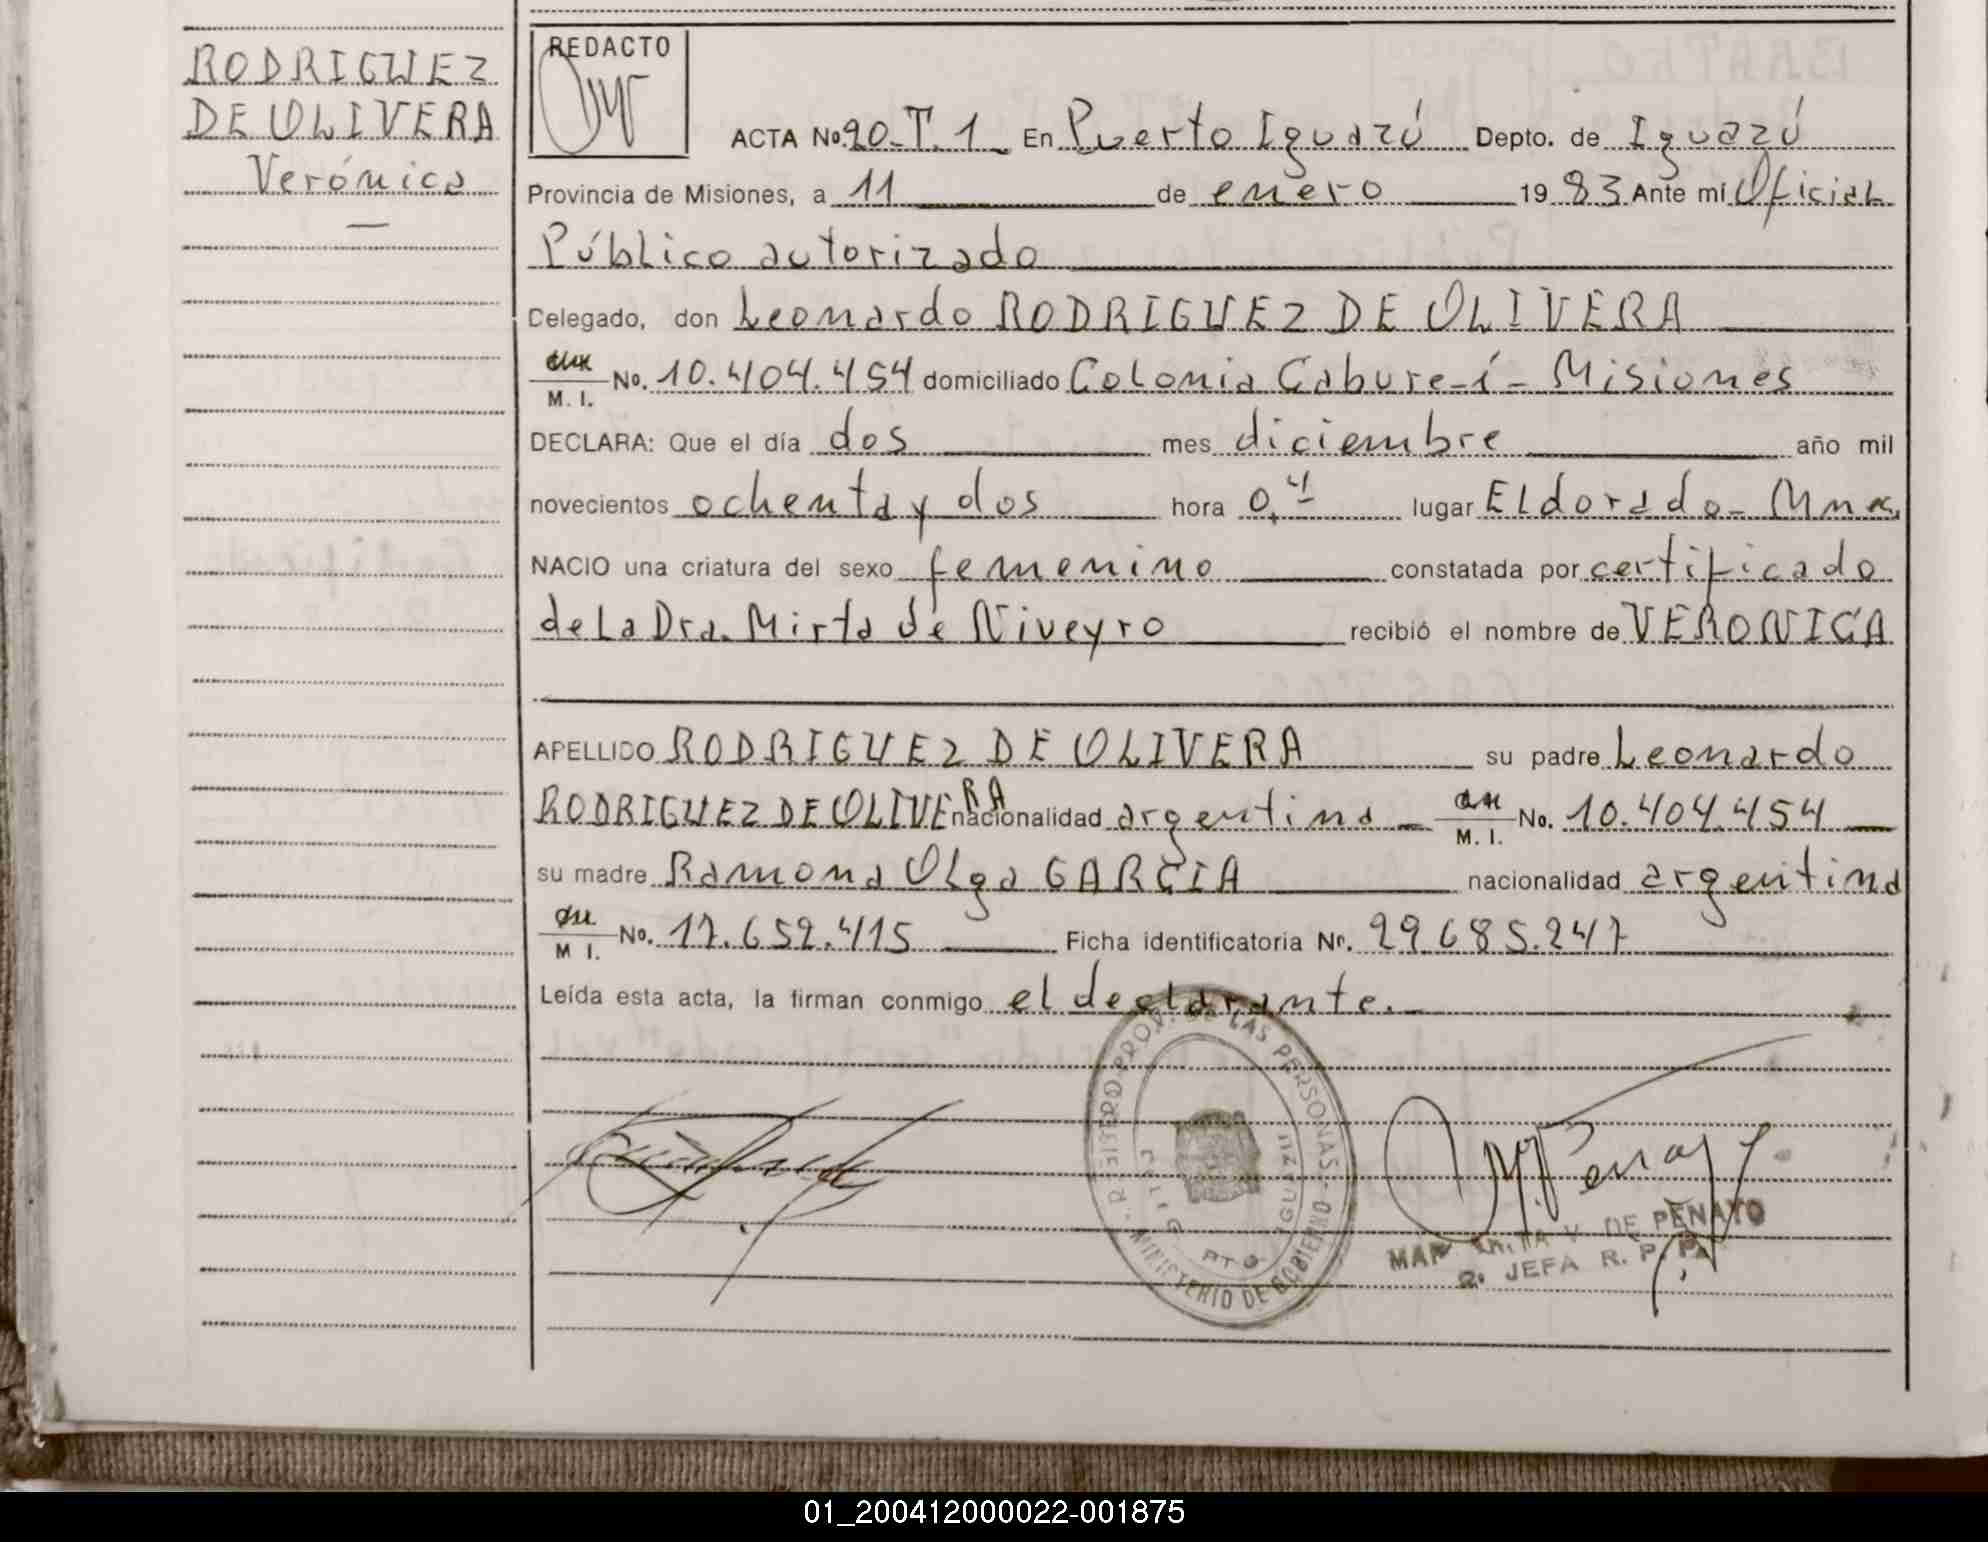 RODRIGUEZ
DE OLIVERA
Verónica
REDACTO
ACTA No. 20-T. 1 En Puerto Iguazú Depto. de Iguazú
Provincia de Misiones, a 11 de enero 1983 Ante mí Oficial
Público autorizado
Celegado, don Leonardo RODRIGUEZ DE OLIVERA
M. I. No. 10.404.454 domiciliado Colonia Cabure-í - Misiones
DECLARA: Que el día dos mes diciembre año mil
novecientos ochenta y dos hora 0,4 lugar Eldorado - Mnes.
NACIO una criatura del sexo femenino constatada por certificado
de la Dra. Mirta de Niveyro recibió el nombre de VERONICA
APELLIDO RODRIGUEZ DE OLIVERA su padre Leonardo
RODRIGUEZ DE OLIVERA nacionalidad argentina M. I. No. 10.404.454
su madre Ramona Olga GARCIA nacionalidad argentina
M I. No. 17.652.415 Ficha identificatoria Nr. 29685.247
Leída esta acta, la firman conmigo el declarante.
REGISTRO PROV. DE LAS PERSONAS - MINISTERIO DE GOBIERNO
PTO IGUAZU
V. DE PENAYO
2º JEFA R. P. P.
01_200412000022-001875